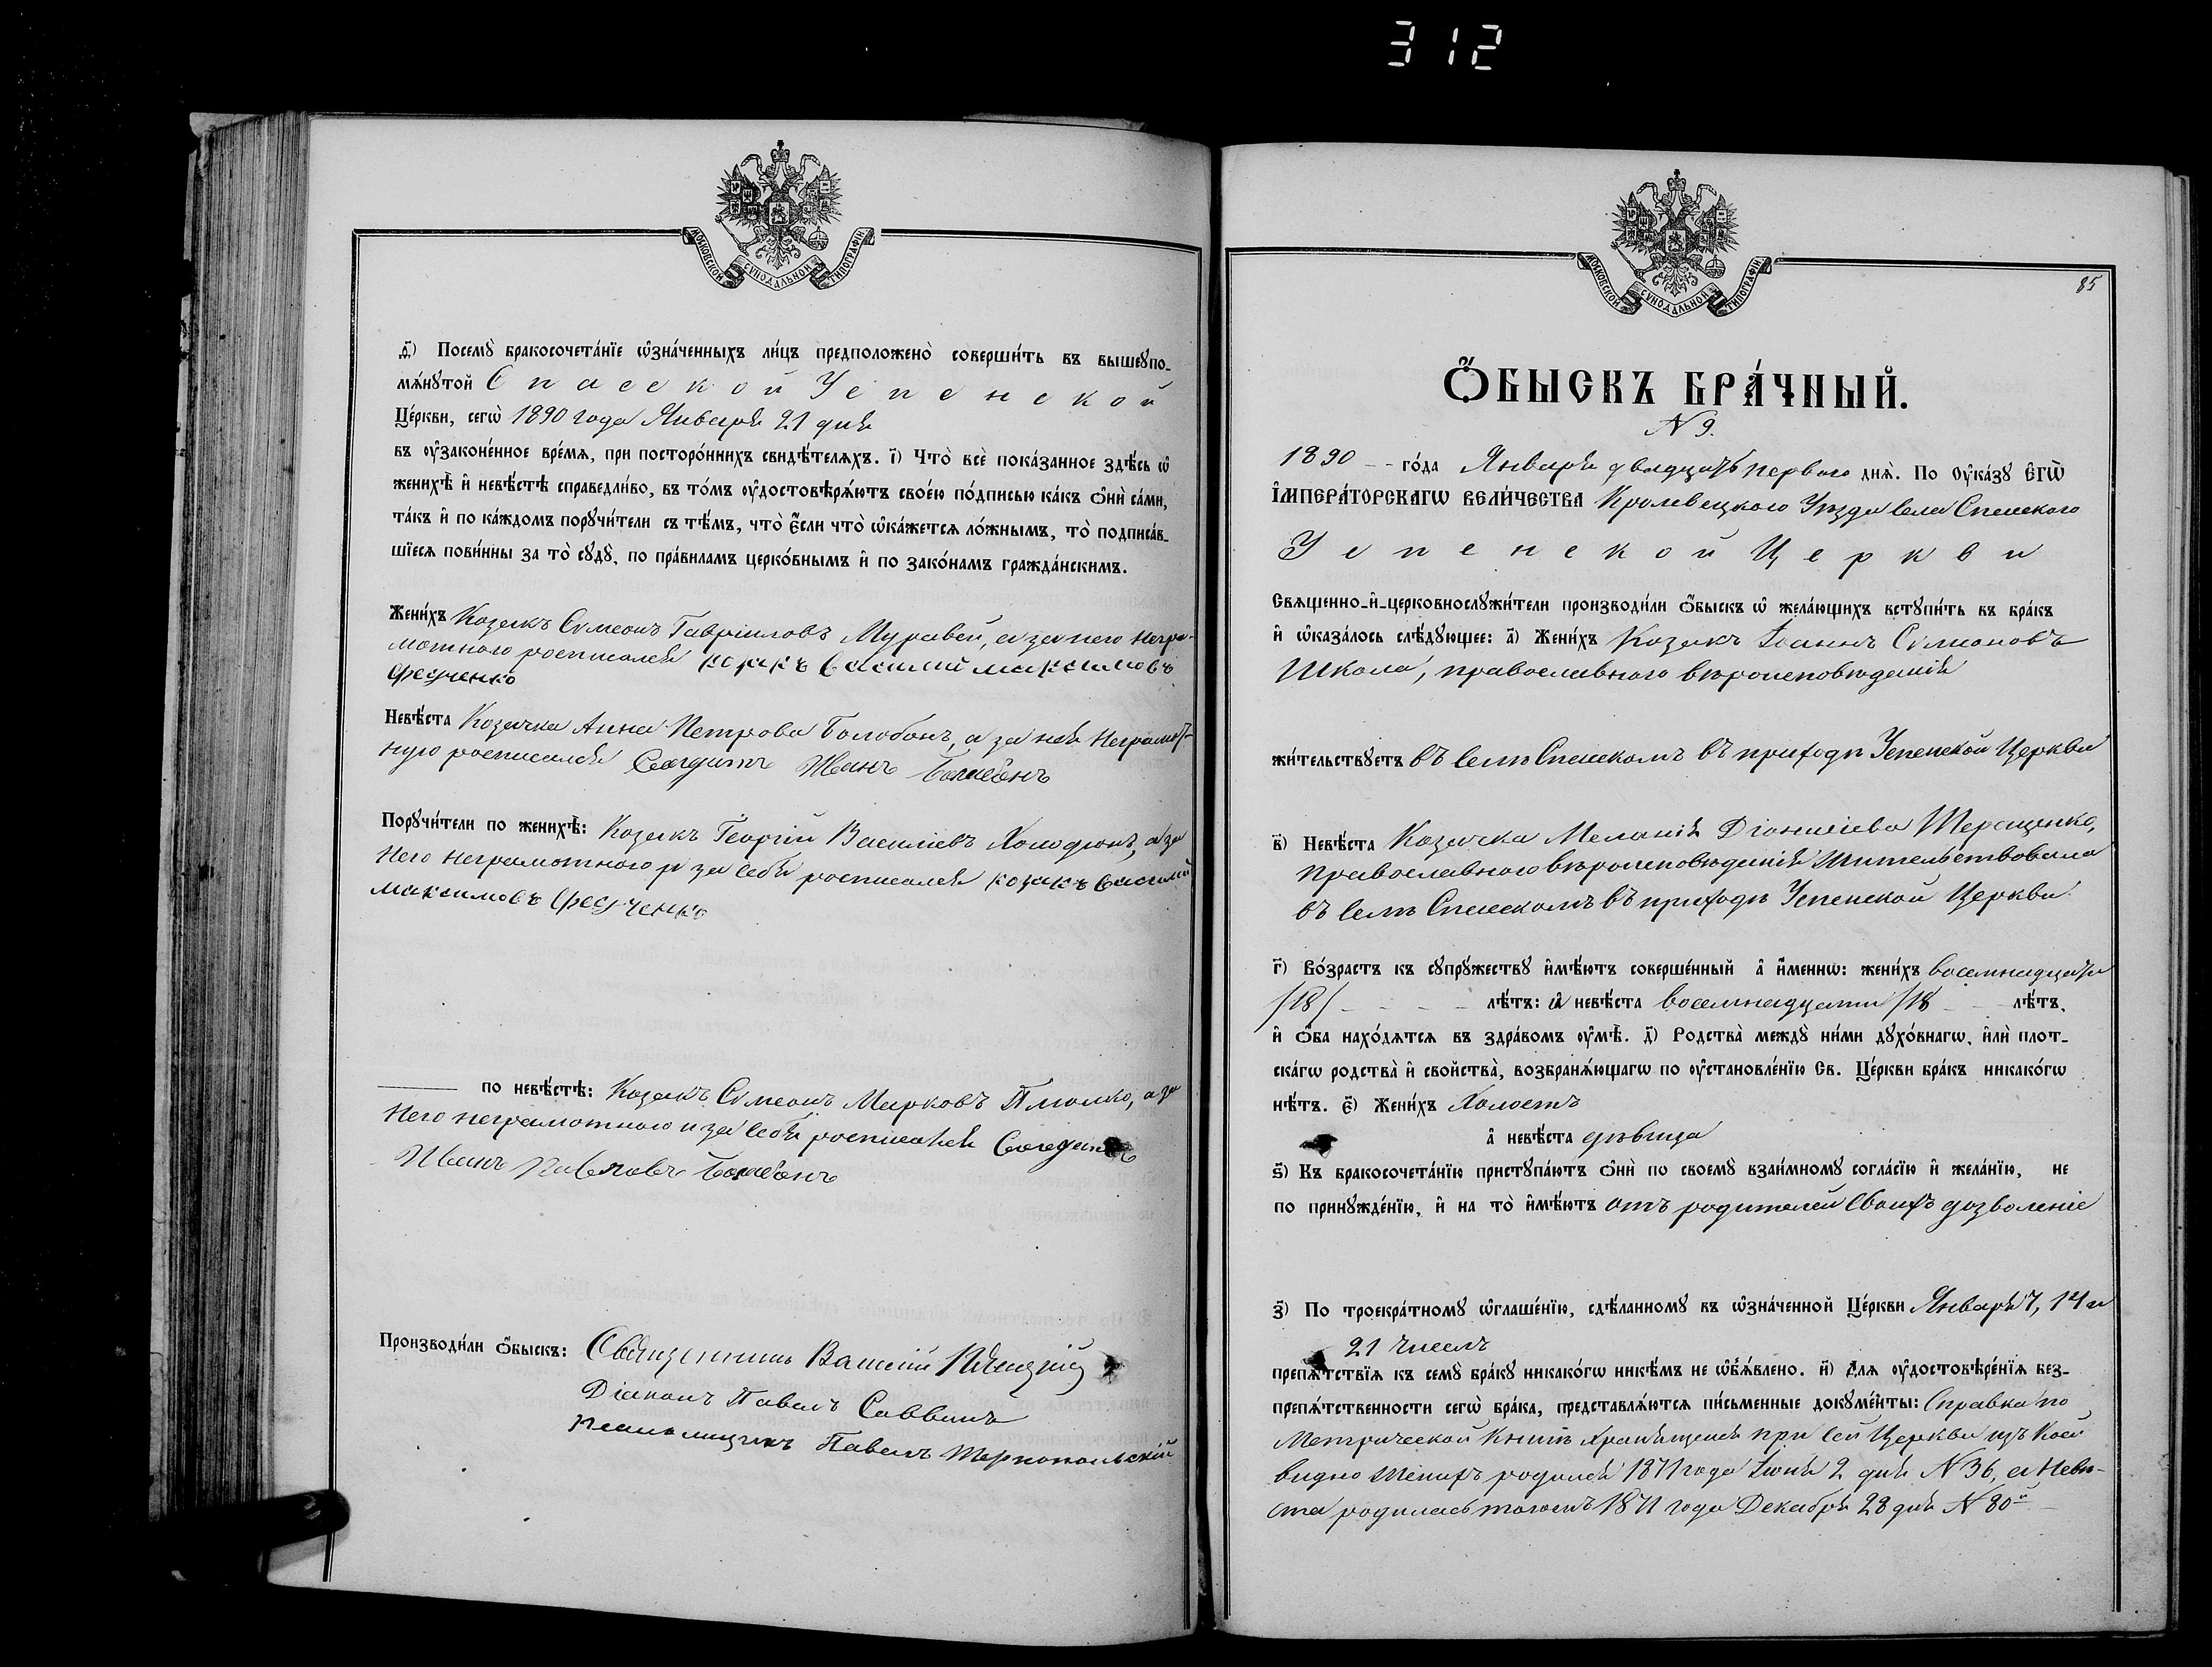 312
МОСКОВСКОЙ СѴНОДАЛЬНОЙ ТИПОГРАФІИ
д҃і) Посемꙋ̀ бракосочета́нїе ѡ҆зна́ченныхъ ли́цъ предположено̀ соверши́ть въ вышеꙋпо-
мѧ́нꙋтой Спасской Успенской
Це́ркви, сегѡ̀ 1890 года Января 21 дня
въ ᲂу҆законе́нное вре́мѧ, при посторо́ннихъ свидѣ́телѧхъ. і҃) Что̀ всѐ пока́занное здѣ́сь ѡ҆
женихѣ̀ и҆ невѣ́стѣ справедли́во, въ то́мъ ᲂу҆достовѣрѧ́ютъ свое́ю по́дписью ка́къ ѻ҆нѝ са́ми,
та́къ и҆ по ка́ждомъ порꙋчи́тели съ тѣ́мъ, что̀ є҆́сли что̀ ѡ҆ка́жетсѧ ло́жнымъ, то̀ подписа́в-
шїесѧ пови́нны за то̀ сꙋдꙋ̀, по пра́виламъ церко́внымъ и҆ по зако́намъ гражда́нскимъ.
Жени́хъ Козакъ Сѵмеонъ Гавріиловъ Муравей, а за него негра-
мотнаго росписался козакъ Василий Максимовъ
Федченко
Невѣ́ста Козачка Анна Петрова Болобонъ, а за нея неграмот-
ную росписался Солдатъ Иванъ Болобонъ
Порꙋчи́тели по женихѣ̀: Козакъ Георгій Василіевъ, а за
него неграмотнаго и за себя росписался козакъ Василий
Максимовъ Федченко
по невѣ́стѣ: Козакъ Сѵмеонъ Марковъ, а за
него неграмотнаго и за себя росписался Солдатъ
Иванъ Павловъ Болобонъ
Производи́ли ѻ҆́быскъ: Священникъ Василій
Діаконъ Павелъ Саввинъ
Псаломщикъ Павелъ Тернопольскій
МОСКОВСКОЙ СѴНОДАЛЬНОЙ ТИПОГРАФІИ
85
Ѻ҆́БЫСКЪ БРА́ЧНЫЙ.
N 9.
1890 го́да Января двадцать перваго днѧ̀. По ᲂу҆ка́зꙋ є҆гѡ̀
і҆мпера́торскагѡ вели́чества Кролевецкаго Уѣзда села Спасскаго
Успенской Церкви
Свѧщенно-и҆-церковнослꙋжи́тели производи́ли ѻ҆́быскъ ѡ҆ жела́ющихъ встꙋпи́ть въ бра́къ
и҆ ѡ҆каза́лось слѣ́дꙋющее: а҃) Жени́хъ Козакъ Іоаннъ Сѵмеоновъ
Школа, православнаго вѣроисповѣданія
жи́тельствꙋетъ въ селѣ Спасскомъ въ приходѣ Успенской Церкви
в҃) Невѣ́ста Козачка Меланія Діонисіева Терещенко,
православнаго вѣроисповѣданія жительствовала
въ селѣ Спасскомъ въ приходѣ Успенской Церкви
г҃) Во́зрастъ къ сꙋпрꙋ́жествꙋ и҆мѣ́ютъ соверше́нный а҆ и҆́меннѡ: жени́хъ восемнадцати
/18/ лѣ́тъ: а҆ невѣ́ста восемнадцати /18 лѣ́тъ,
и҆ ѻ҆́ба нахо́дѧтсѧ въ здра́вомъ ᲂу҆мѣ̀. д҃) Родства̀ междꙋ̀ ни́ми дꙋхо́внагѡ, и҆лѝ плот-
скагѡ родства̀ и҆ свойства̀, возбранѧ́ющагѡ по ᲂу҆становле́нїю Св. Це́ркви бра́къ никако́гѡ
нѣ́тъ. є҃) Жени́хъ Холостъ
а҆ невѣ́ста дѣвица
ѕ҃) Къ бракосочета́нїю пристꙋпа́ютъ ѻ҆нѝ по своемꙋ̀ взаи́мномꙋ согла́сїю и҆ жела́нїю, не
по принꙋжде́нїю, и҆ на то̀ и҆мѣ́ютъ отъ родителей своихъ дозволеніе
з҃) По троекра́тномꙋ ѡ҆глаше́нїю, сдѣ́ланномꙋ въ ѡ҆зна́ченной Це́ркви Января 7, 14 и
21 чиселъ
препѧ́тствїѧ къ семꙋ̀ бра́кꙋ никако́гѡ никѣ́мъ не ѡ҆бъѧ́влено. и҃) Длѧ ᲂу҆достовѣре́нїѧ без-
препѧ́тственности сегѡ̀ бра́ка, представлѧ́ютсѧ пи́сьменные докꙋме́нты: Справка по
Метрической книгѣ хранящейся при сей Церкви изъ коей
видно Женихъ родился 1871 года Іюня 2 дня N 36, а Невѣ-
ста родилась тогожъ 1871 года Декабря 28 дня N 80й